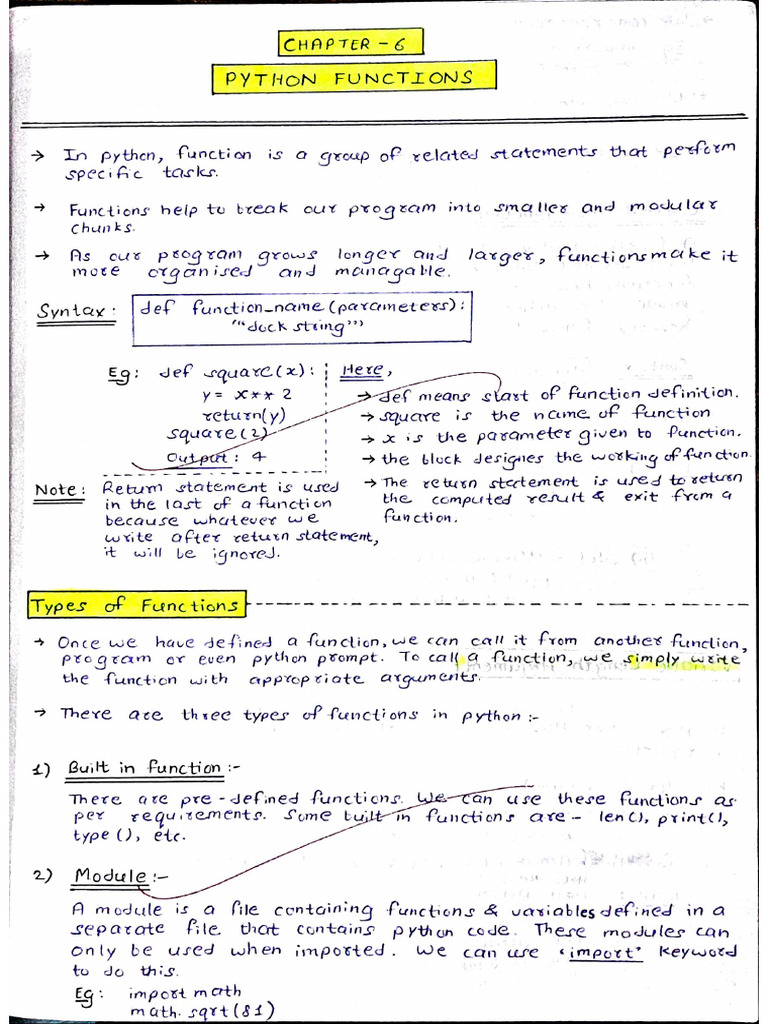 CHAPTER - 6
PYTHON FUNCTIONS
→ In python, function is a group of related statements that perform
specific tasks.
→ Functions help to break our program into smaller and modular
chunks.
→ As our program grows longer and larger, functions make it
more organised and managable.
Syntax: def function_name (parameters):
"''dock string''"
Eg: def square(x):
y = x**2
return(y)
square(2)
Output: 4
Here,
→ def means start of function definition.
→ square is the name of function
→ x is the parameter given to function.
→ the block designes the working of function.
→ The return statement is used to return
the computed result & exit from a
function.
Note: Return statement is used
in the last of a function
because whatever we
write after return statement,
it will be ignored.
Types of Functions
→ Once we have defined a function, we can call it from another function,
program or even python prompt. To call a function, we simply write
the function with appropriate arguments.
→ There are three types of functions in python :-
1) Built in function :-
There are pre-defined functions. We can use these functions as
per requirements. Some built in functions are - len(), print(),
type(), etc.
2) Module :-
A module is a file containing functions & variables defined in a
separate file that contains python code. These modules can
only be used when imported. We can use 'import' keyword
to do this.
Eg: import math
math.sqrt(81)